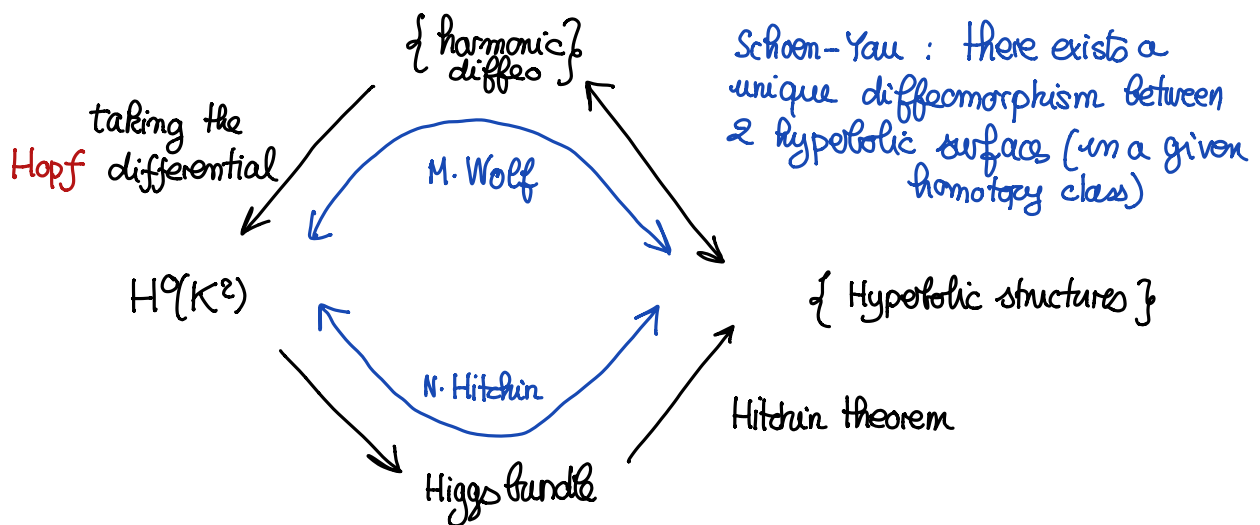 { harmonic }
diffeo
Schoen-Yau : there exists a
unique diffeomorphism between
2 hyperbolic surfaces (in a given
homotopy class)
taking the
Hopf differential
M. Wolf
H⁰(K²)
{ Hyperbolic structures }
N. Hitchin
Hitchin theorem
Higgs bundle